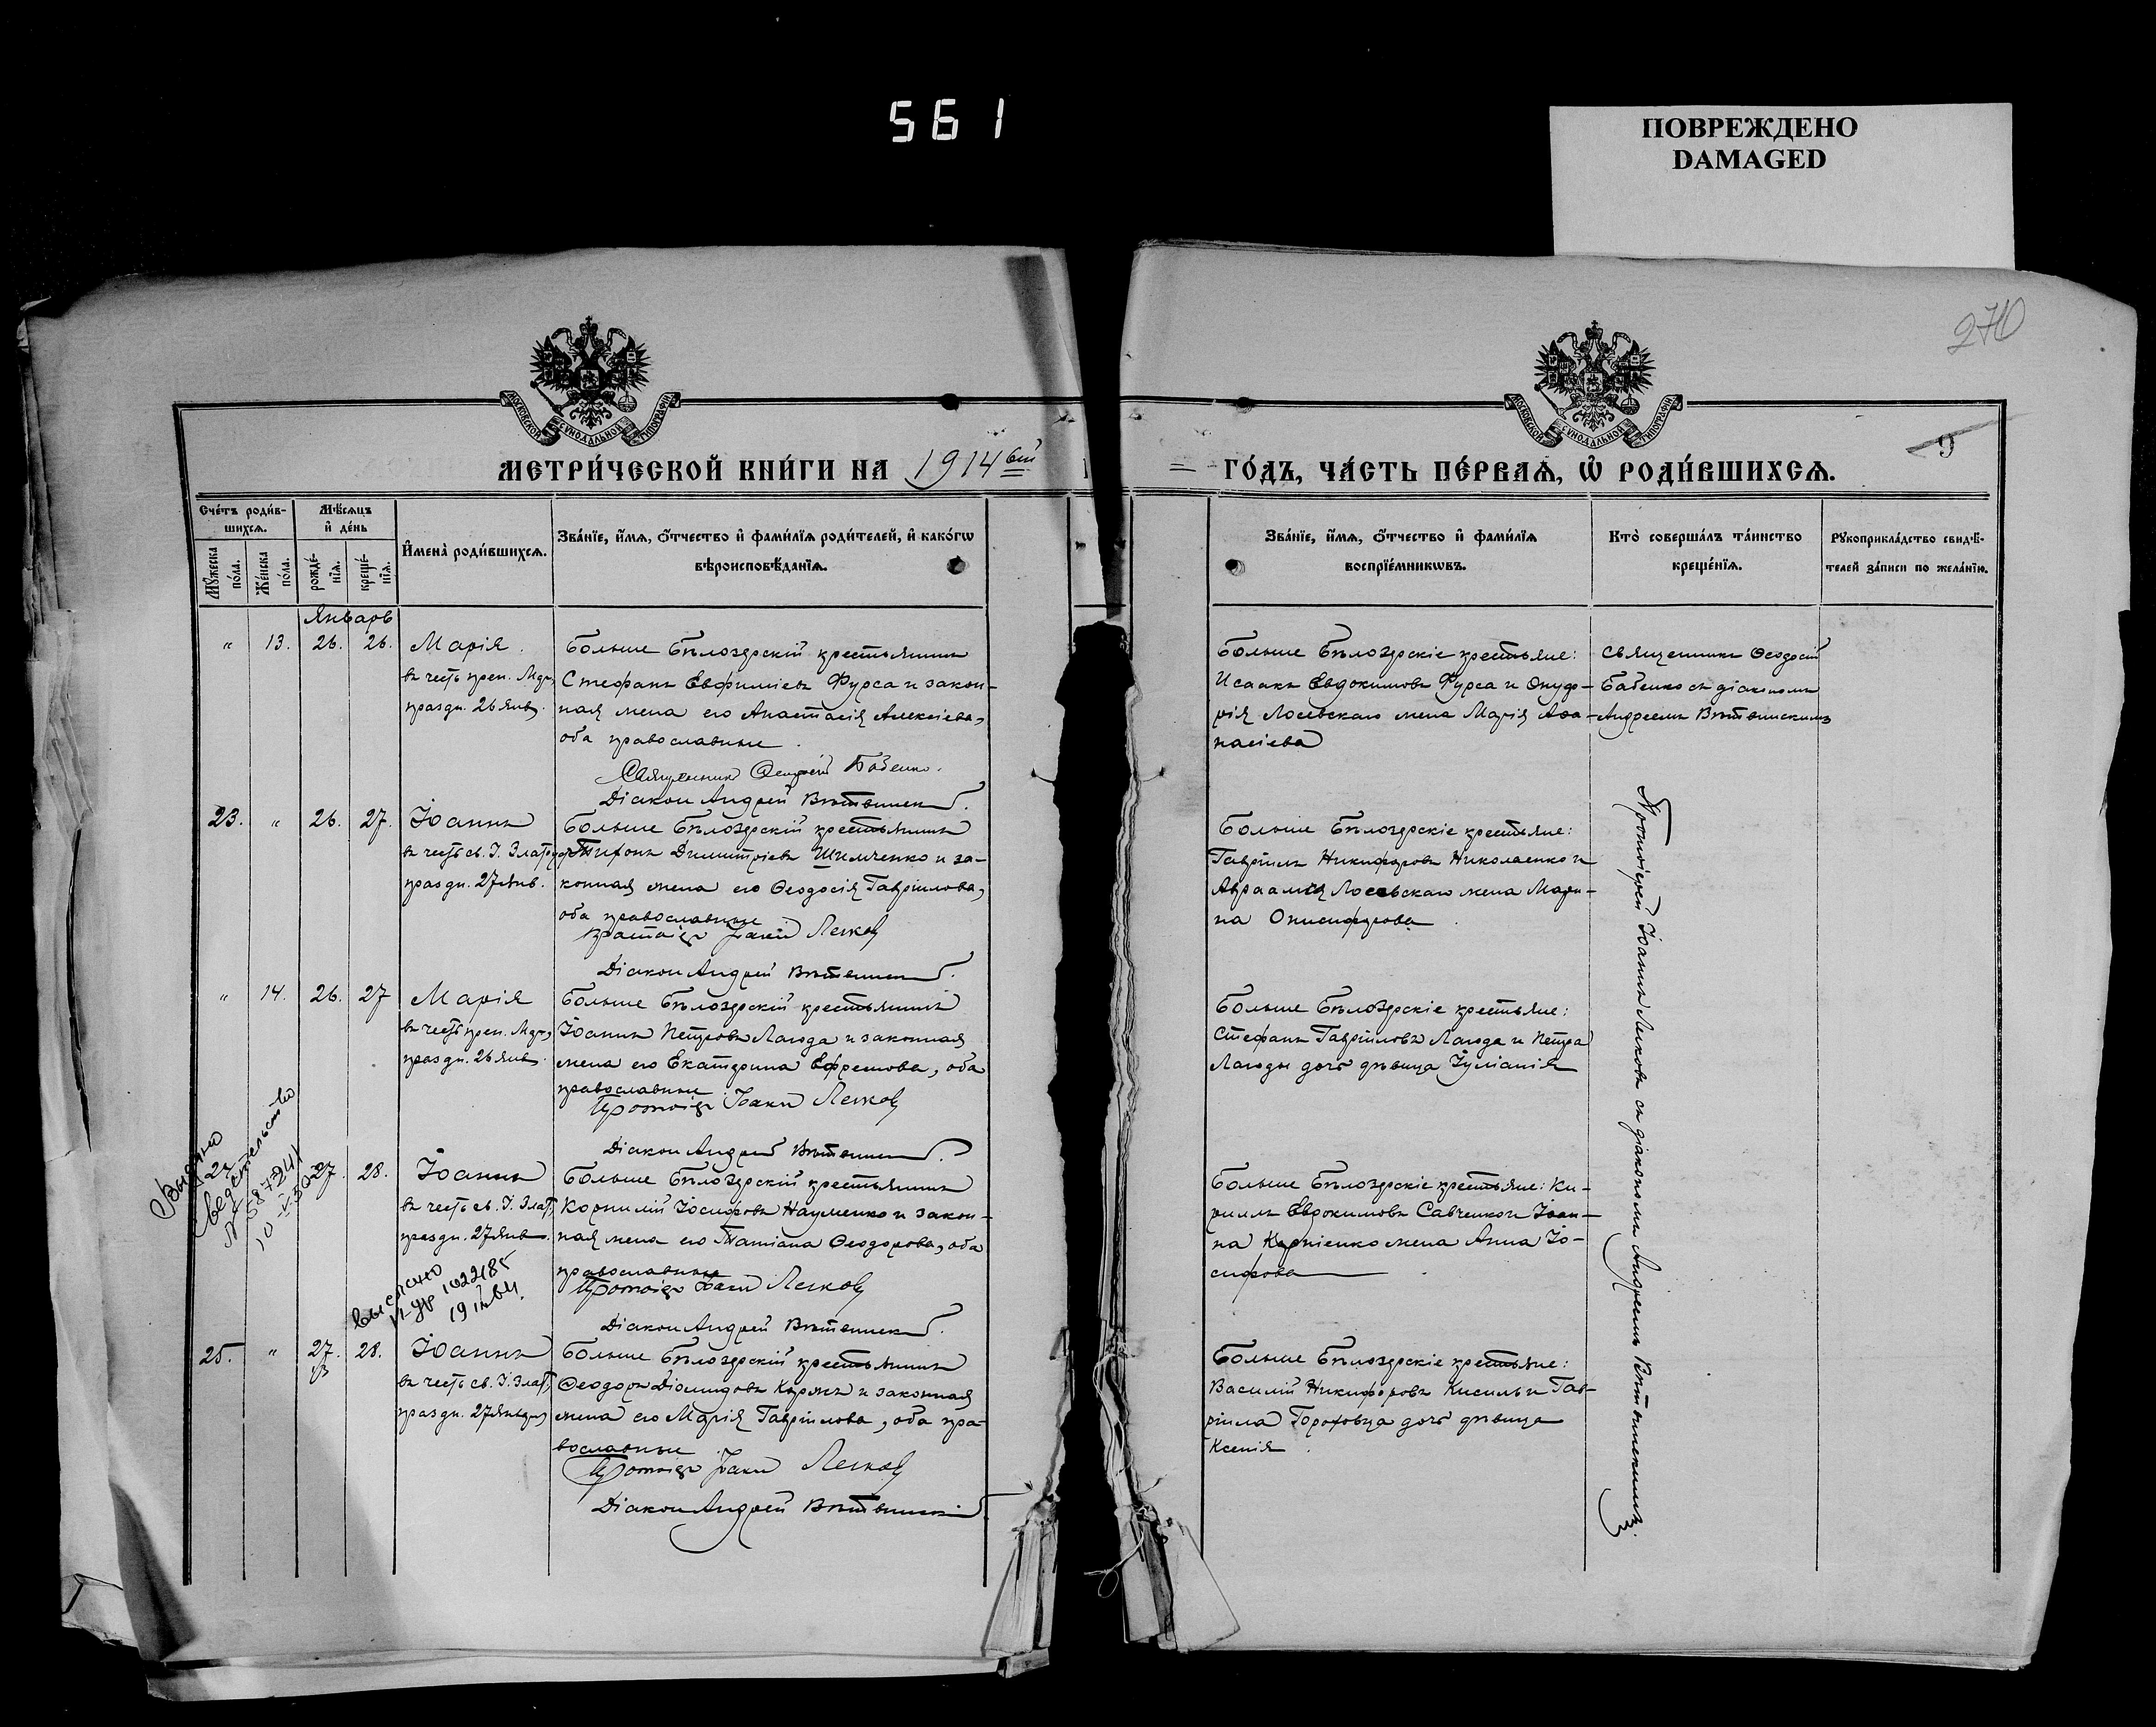 561
ПОВРЕЖДЕНО
DAMAGED
270
МОСКОВСКОЙ СѴНОДАЛЬНОЙ ТИПОГРАФІИ
МОСКОВСКОЙ СѴНОДАЛЬНОЙ ТИПОГРАФІИ
9
МЕТРИ́ЧЕСКОЙ КНИ́ГИ НА 1914 ый
ГО́ДЪ, ЧА́СТЬ ПЕ́РВАѦ, Ѡ҆ РОДИ́ВШИХСѦ.
Сче́тъ роди́в-
шихсѧ.
Мꙋ́жеска по́ла.
Же́нска по́ла.
Мѣ́сѧцъ
и҆ де́нь
рожде́-
нїѧ.
креще́-
нїѧ.
И҆мена̀ роди́вшихсѧ.
Зва́нїе, и҆́мѧ, ѻ҆́тчество и҆ фами́лїѧ роди́телей, и҆ како́гѡ
вѣроисповѣ́данїѧ.
Зва́нїе, и҆́мѧ, ѻ҆́тчество и҆ фами́лїѧ
воспрїе́мникѡвъ.
Кто̀ соверша́лъ та́инство
креще́нїѧ.
Рꙋкоприкла́дство свидѣ́-
телей за́писи по жела́нїю.
Январь
" 13. 26. 26.
Марія.
въ честь преп. Мар.,
праздн. 26 янв.
Больше Бѣлозерскій крестьянинъ
Стефанъ Евфиміевъ Фурса и закон-
ная жена его Анастасія Алексіева,
оба православные.
Священникъ Ѳеодосій Бабенко.
Діаконъ Андрей Вѣтвинскій.
Больше Бѣлозерскіе крестьяне:
Исаакъ Евдокимовъ Фурса и Онуф-
рія Лосевскаго жена Марія Аѳа-
насіева
Священникъ Ѳеодосій
Бабенко съ діакономъ
Андреемъ Вѣтвинскимъ
23. " 26. 27.
Іоаннъ
въ честь св. І. Златоуст.
праздн. 27 янв.
Больше Бѣлозерскій крестьянинъ
Тифонъ Димитріевъ Шимченко и за-
конная жена его Ѳеодосія Гавріилова,
оба православные
Протоіер Іоаннъ Легков
Діаконъ Андрей Вѣтвинскій.
Больше Бѣлозерскіе крестьяне:
Гавріилъ Никифоровъ Николаенко и
Авраамія Лосевскаго жена Мари-
на Онисифорова
Протоіерей Іоаннъ Легковъ съ діакономъ Андреемъ Вѣтвинскимъ.
" 14. 26. 27
Марія
въ честь преп. Мар.,
праздн. 26 янв.
Больше Бѣлозерскій крестьянинъ
Іоаннъ Петровъ Лагода и законная
жена его Екатерина Ефремова, оба
православные.
Протоіер Іоаннъ Легков
Діаконъ Андрей Вѣтвинскій.
Больше Бѣлозерскіе крестьяне:
Стефанъ Гавріиловъ Лагода и Петра
Лагоды дочь дѣвица Іуліанія
Выдано
свидетельство
№ 587241
24. 27. 28.
Іоаннъ
въ честь св. І. Злат.,
праздн. 27 янв.
Больше Бѣлозерскій крестьянинъ
Корнилій Іосифовъ Науменко и закон-
ная жена его Татіана Ѳеодорова, оба
православные
Протоіер Іоаннъ Легков
Діаконъ Андрей Вѣтвинскій.
Больше Бѣлозерскіе крестьяне: Ки-
риллъ Евдокимовъ Савченко и Іоан-
на Корніенко жена Анна Іо-
сифова
Выслано
1022185
25. " 27. 28.
Іоаннъ
въ честь св. І. Злат.,
праздн. 27 января
Больше Бѣлозерскій крестьянинъ
Ѳеодоръ Діомидовъ Коржъ и законная
жена его Марія Гавріилова, оба пра-
вославные.
Протоіер Іоаннъ Легков
Діаконъ Андрей Вѣтвинскій
Больше Бѣлозерскіе крестьяне:
Василій Никифоровъ Кисиль и Гав-
ріила Гороховца дочь дѣвица
Ксенія.